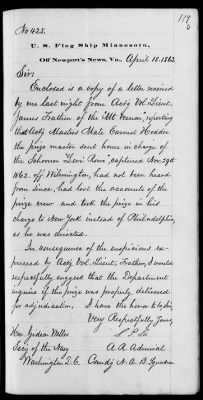 119
6
No 428.
U. S. Flag Ship Minnesota,
Off Newport's News, Va., April 18. 1863.
Sir:
Enclosed is a copy of a letter received
by me last night from Actg Vol. Lieut.
James Trathen of the "Mt Vernon", reporting
that Actg Masters Mate Carmel Hadder
the prize master sent home in charge of
the Schooner "Levi Rowe", captured Nov. 29th
1862. off Wilmington, had not been heard
from since, had lost the accounts of the
prize crew and took the prize in his
charge to New York instead of Philadelphia,
as he was directed.
In consequence of the suspicions ex-
pressed by Actg Vol. Lieut. Trathen, I would
respectfully suggest that the Department
inquire if the prize was properly delivered
for adjudication. I have the honor to be, Sir,
Very Respectfully Yours,
Hon. Gideon Welles S. P. L.
Secy of the Navy A. R. Admiral
Washington D. C. Comdg N. A. B. Squadron